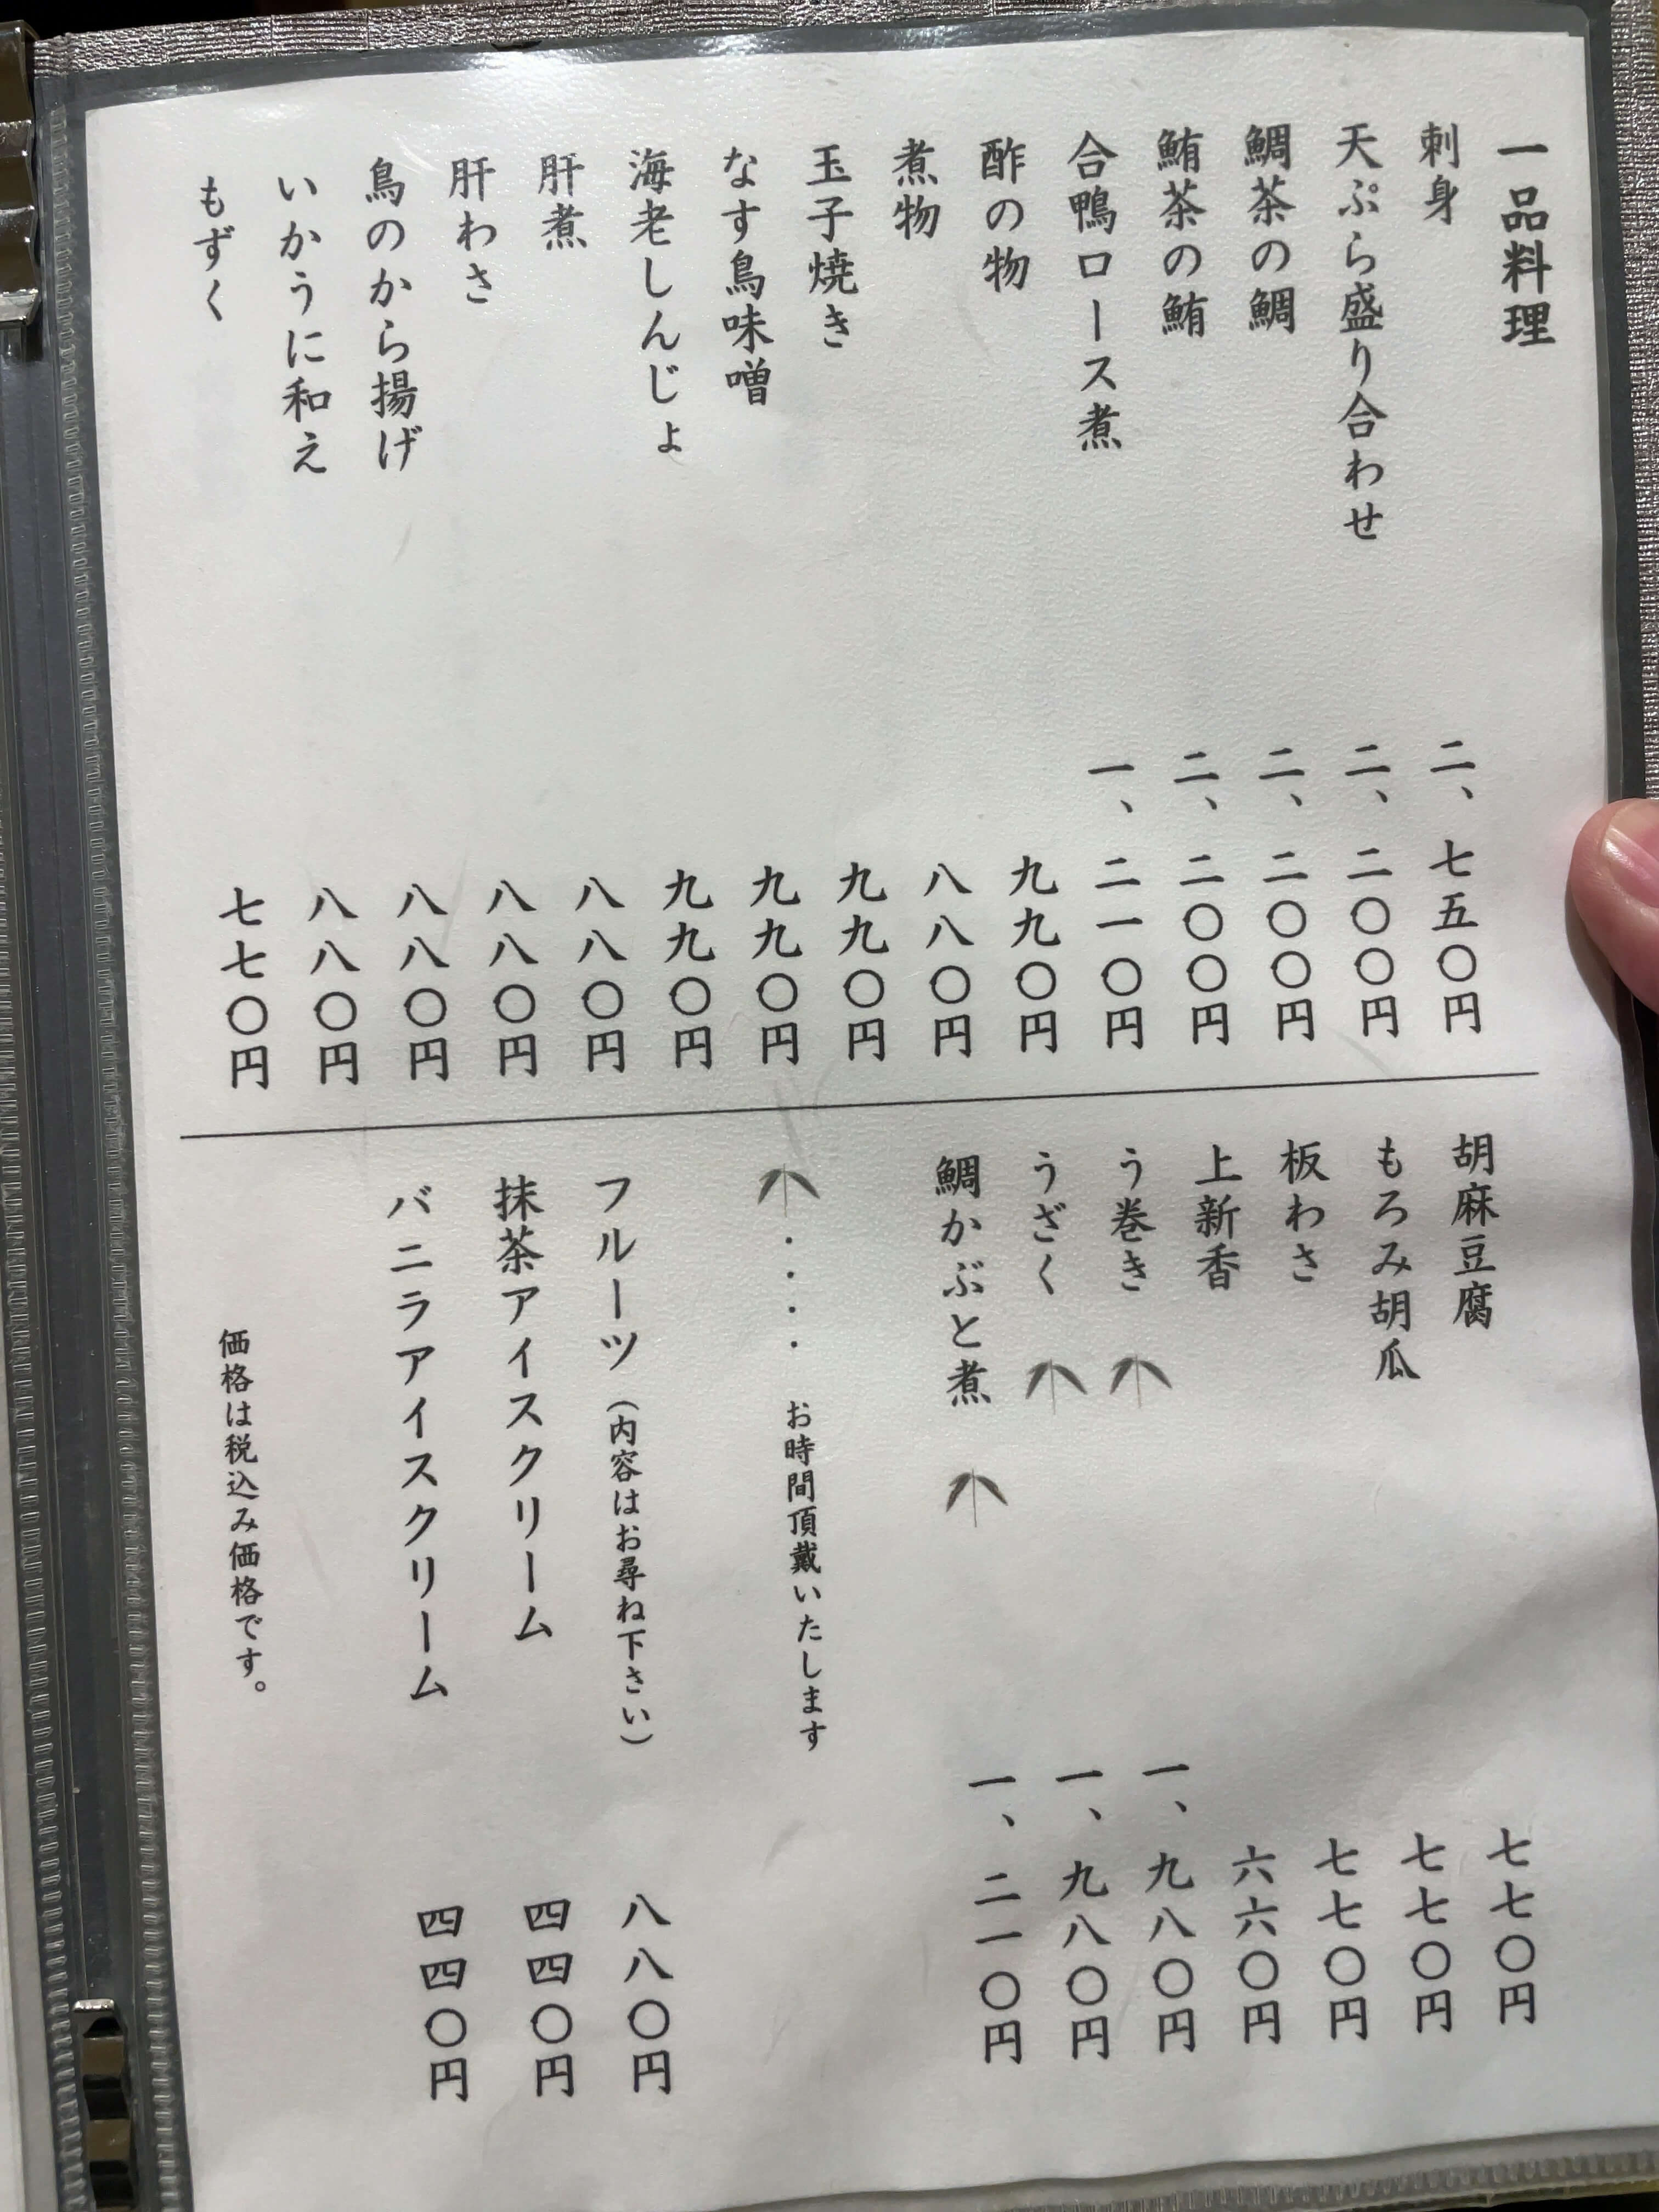 一品料理
刺身 二、七五〇円
天ぷら盛り合わせ 二、二〇〇円
鯛茶の鯛 二、二〇〇円
鮪茶の鮪 二、二〇〇円
合鴨ロース煮 一、二一〇円
酢の物 九九〇円
煮物 八八〇円
玉子焼き 九九〇円
なす鳥味噌 九九〇円
海老しんじょ 九九〇円
肝煮 八八〇円
肝わさ 八八〇円
鳥のから揚げ 八八〇円
いかうに和え 八八〇円
もずく 七七〇円
胡麻豆腐 七七〇円
もろみ胡瓜 七七〇円
板わさ 七七〇円
上新香 六六〇円
う巻き 一、九八〇円
うざく 一、九八〇円
鯛かぶと煮 一、二一〇円
・・・・ お時間頂戴いたします
フルーツ（内容はお尋ね下さい） 八八〇円
抹茶アイスクリーム 四四〇円
バニラアイスクリーム 四四〇円
価格は税込み価格です。